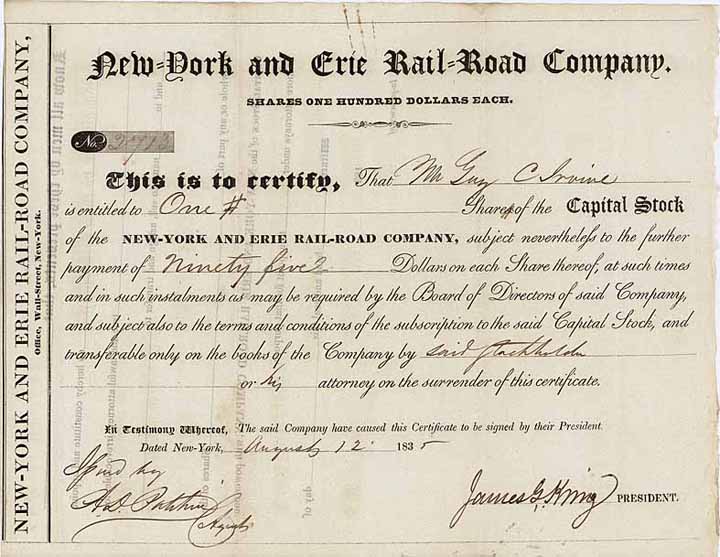 NEW-YORK AND ERIE RAIL-ROAD COMPANY,
Office, Wall-Street, New-York.
New-York and Erie Rail-Road Company.
SHARES ONE HUNDRED DOLLARS EACH.
No.
This is to certify, That Mr Guy C Irvine
is entitled to One # Share of the Capital Stock
of the NEW-YORK AND ERIE RAIL-ROAD COMPANY, subject nevertheless to the further
payment of Ninety five Dollars on each Share thereof, at such times
and in such instalments as may be required by the Board of Directors of said Company,
and subject also to the terms and conditions of the subscription to the said Capital Stock, and
transferable only on the books of the Company by said Stockholder
or his attorney on the surrender of this certificate.
In Testimony Whereof, The said Company have caused this Certificate to be signed by their President.
Dated New-York, August 12 1835
James G. King PRESIDENT.